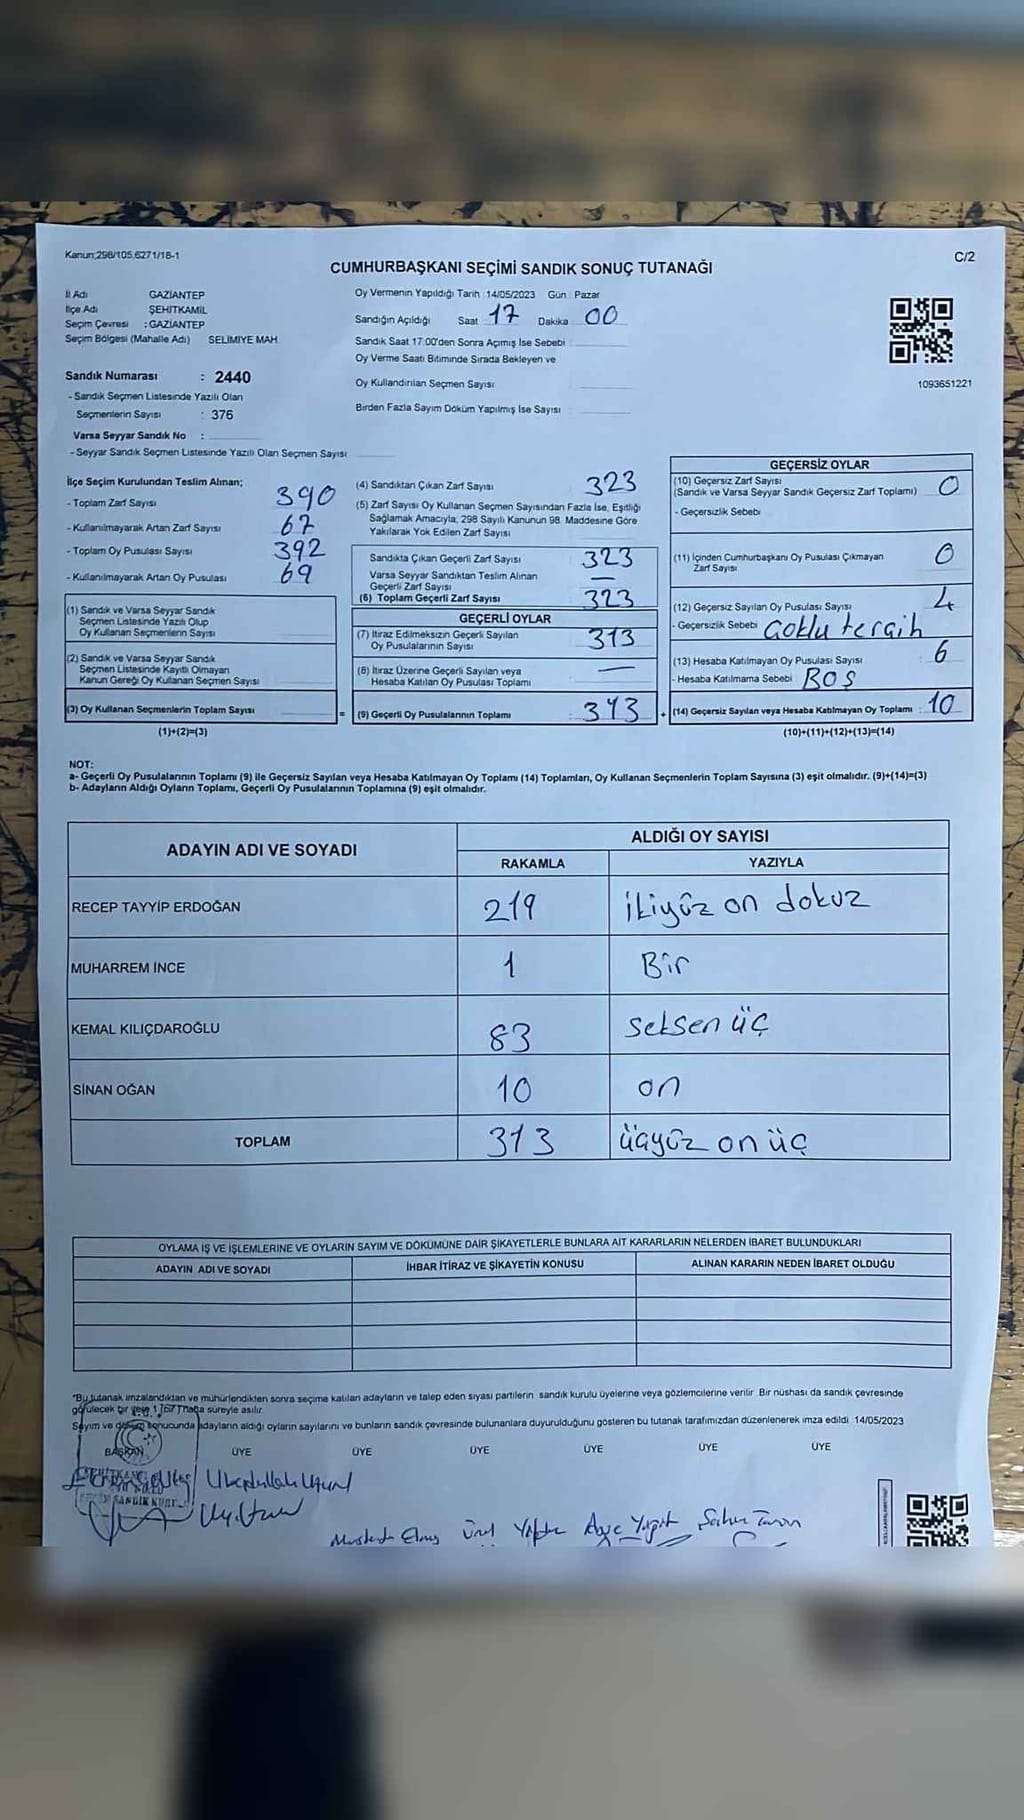 Kanun;298/105,6271/18-1
C/2
CUMHURBAŞKANI SEÇİMİ SANDIK SONUÇ TUTANAĞI
İl Adı GAZİANTEP
İlçe Adı ŞEHİTKAMİL
Seçim Çevresi : GAZİANTEP
Seçim Bölgesi (Mahalle Adı) SELIMIYE MAH.
Sandık Numarası : 2440
- Sandık Seçmen Listesinde Yazılı Olan
Seçmenlerin Sayısı : 376
Varsa Seyyar Sandık No :
- Seyyar Sandık Seçmen Listesinde Yazılı Olan Seçmen Sayısı
Oy Vermenin Yapıldığı Tarih :14/05/2023 Gün : Pazar
Sandığın Açıldığı Saat 17 Dakika 00
Sandık Saat 17:00'den Sonra Açılmış İse Sebebi :
Oy Verme Saati Bitiminde Sırada Bekleyen ve
Oy Kullandırılan Seçmen Sayısı :
Birden Fazla Sayım Döküm Yapılmış İse Sayısı :
1093651221
İlçe Seçim Kurulundan Teslim Alınan;
- Toplam Zarf Sayısı 390
- Kullanılmayarak Artan Zarf Sayısı 67
- Toplam Oy Pusulası Sayısı 392
- Kullanılmayarak Artan Oy Pusulası 69
(1) Sandık ve Varsa Seyyar Sandık
Seçmen Listesinde Yazılı Olup
Oy Kullanan Seçmenlerin Sayısı
(2) Sandık ve Varsa Seyyar Sandık
Seçmen Listesinde Kayıtlı Olmayan
Kanun Gereği Oy Kullanan Seçmen Sayısı
(3) Oy Kullanan Seçmenlerin Toplam Sayısı
(1)+(2)=(3)
(4) Sandıktan Çıkan Zarf Sayısı 323
(5) Zarf Sayısı Oy Kullanan Seçmen Sayısından Fazla İse, Eşitliği
Sağlamak Amacıyla, 298 Sayılı Kanunun 98. Maddesine Göre
Yakılarak Yok Edilen Zarf Sayısı
Sandıkta Çıkan Geçerli Zarf Sayısı : 323
Varsa Seyyar Sandıktan Teslim Alınan
Geçerli Zarf Sayısı : —
(6) Toplam Geçerli Zarf Sayısı : 323
GEÇERLİ OYLAR
(7) İtiraz Edilmeksizin Geçerli Sayılan
Oy Pusulalarının Sayısı : 313
(8) İtiraz Üzerine Geçerli Sayılan veya
Hesaba Katılan Oy Pusulası Toplamı : —
= (9) Geçerli Oy Pusulalarının Toplamı : 313 +
GEÇERSİZ OYLAR
(10) Geçersiz Zarf Sayısı
(Sandık ve Varsa Seyyar Sandık Geçersiz Zarf Toplamı) : 0
- Geçersizlik Sebebi
(11) İçinden Cumhurbaşkanı Oy Pusulası Çıkmayan
Zarf Sayısı 0
(12) Geçersiz Sayılan Oy Pusulası Sayısı : 4
- Geçersizlik Sebebi Çoklu tercih
(13) Hesaba Katılmayan Oy Pusulası Sayısı : 6
- Hesaba Katılmama Sebebi BOŞ
(14) Geçersiz Sayılan veya Hesaba Katılmayan Oy Toplamı : 10
(10)+(11)+(12)+(13)=(14)
NOT:
a- Geçerli Oy Pusulalarının Toplamı (9) ile Geçersiz Sayılan veya Hesaba Katılmayan Oy Toplamı (14) Toplamları, Oy Kullanan Seçmenlerin Toplam Sayısına (3) eşit olmalıdır. (9)+(14)=(3)
b- Adayların Aldığı Oyların Toplamı, Geçerli Oy Pusulalarının Toplamına (9) eşit olmalıdır.
ADAYIN ADI VE SOYADI ALDIĞI OY SAYISI
RAKAMLA YAZIYLA
RECEP TAYYİP ERDOĞAN 219 ikiyüz on dokuz
MUHARREM İNCE 1 Bir
KEMAL KILIÇDAROĞLU 83 seksen üç
SİNAN OĞAN 10 on
TOPLAM 313 üçyüz on üç
OYLAMA İŞ VE İŞLEMLERİNE VE OYLARIN SAYIM VE DÖKÜMÜNE DAİR ŞİKAYETLERLE BUNLARA AİT KARARLARIN NELERDEN İBARET BULUNDUKLARI
ADAYIN ADI VE SOYADI İHBAR İTİRAZ VE ŞİKAYETİN KONUSU ALINAN KARARIN NEDEN İBARET OLDUĞU
*Bu tutanak imzalandıktan ve mühürlendikten sonra seçime katılan adayların ve talep eden siyasi partilerin sandık kurulu üyelerine veya gözlemcilerine verilir. Bir nüshası da sandık çevresinde
görülecek bir yere 1 [bir] hafta süreyle asılır.
Sayım ve döküm sonucunda adayların aldığı oyların sayılarını ve bunların sandık çevresinde bulunanlara duyurulduğunu gösteren bu tutanak tarafımızdan düzenlenerek imza edildi. 14/05/2023
BAŞKAN ÜYE ÜYE ÜYE ÜYE ÜYE ÜYE